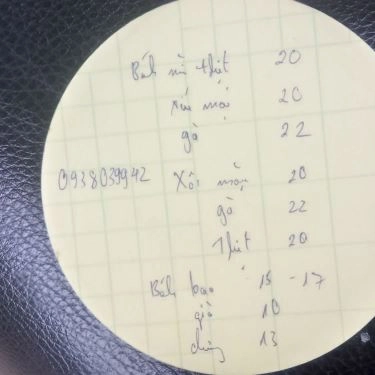 Bánh mì thịt 20
Xíu mại 20
gà 22
0938039942 Xôi mặn 20
gà 22
Thịt 20
Bánh bao 15 - 17
giò 10
chưng 13